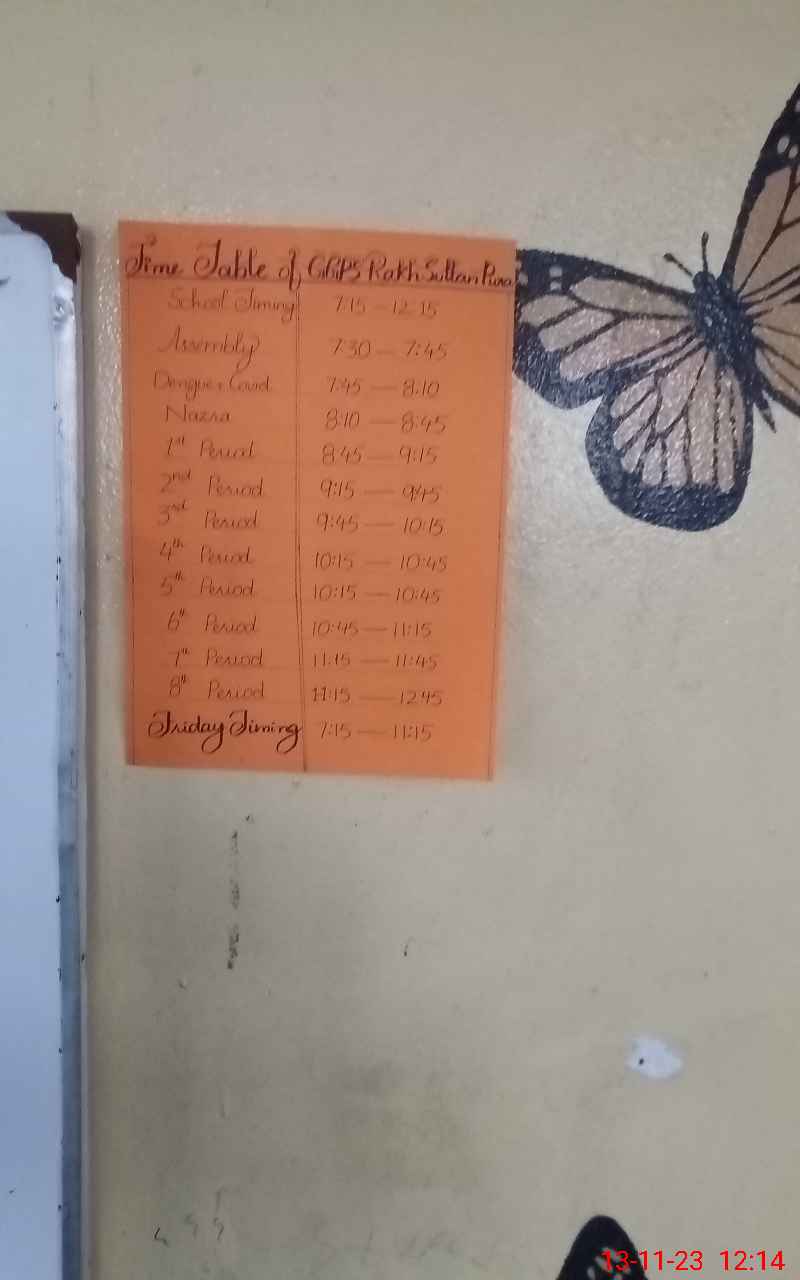 Time Table of GGPS Rakh Sultan Pura
School Timing 7:15 — 12:15
Assembly 7:30 — 7:45
Dengue + Covid 7:45 — 8:10
Nazra 8:10 — 8:45
1st Period 8:45 — 9:15
2nd Period 9:15 — 9:45
3rd Period 9:45 — 10:15
4th Period 10:15 — 10:45
5th Period 10:15 — 10:45
6th Period 10:45 — 11:15
7th Period 11:15 — 11:45
8th Period 11:15 — 12:45
Friday Timing 7:15 — 11:15
13-11-23 12:14